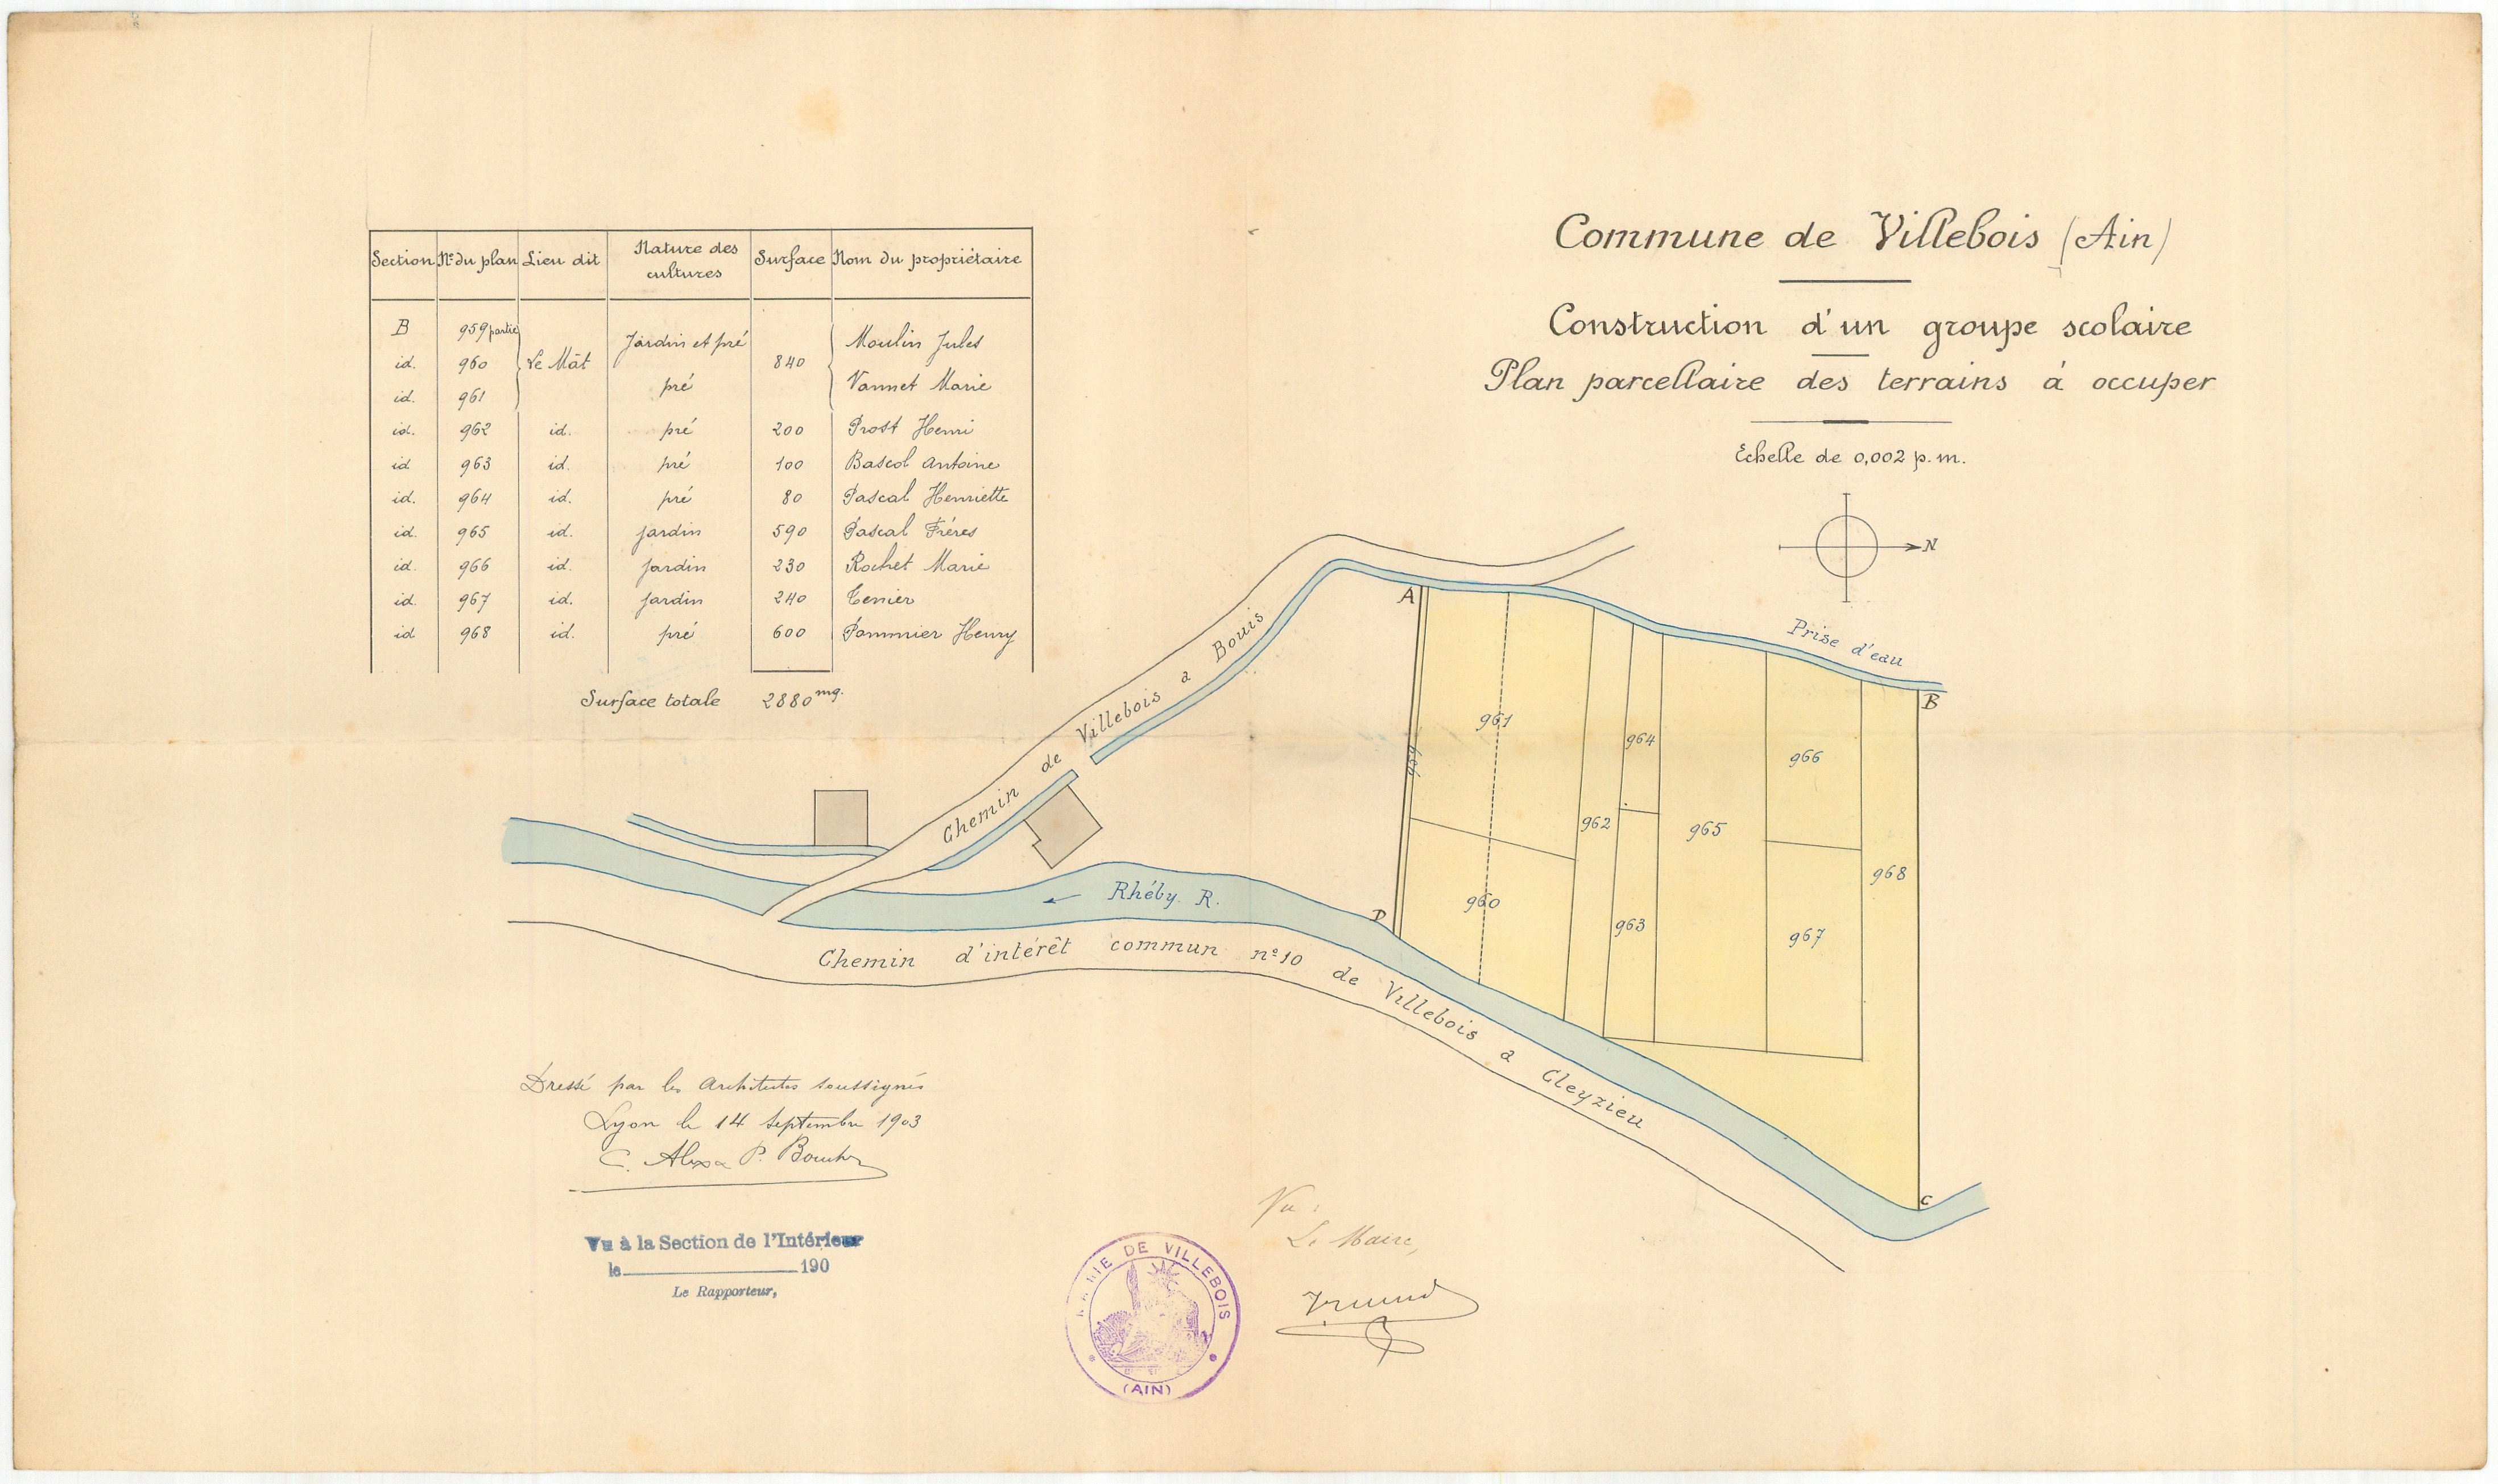 Commune de Villebois (Ain)
Construction d'un groupe scolaire
Plan parcellaire des terrains à occuper
Echelle de 0,002 p.m.
N
Section N° du plan Lieu dit Nature des cultures Surface Nom du propriétaire
B 959 partie Le Mât Jardin et pré 840 Moulin Jules
id. 960
id. 961 pré Vannet Marie
id. 962 id. pré 200 Prost Henri
id 963 id. pré 100 Bascol Antoine
id. 964 id. pré 80 Pascal Henriette
id. 965 id. jardin 590 Pascal Frères
id. 966 id. jardin 230 Rochet Marie
id. 967 id. jardin 240 Tenier
id 968 id. pré 600 Pommier Henry
Surface totale 2880 mq.
Chemin de Villebois à Bouis
Prise d'eau
A
B
C
D
959
961
960
962
964
963
965
966
967
968
Rhéby. R.
Chemin d'intérêt commun n° 10 de Villebois à Cleyzieu
Dressé par les Architectes soussignés
Lyon le 14 Septembre 1903
Vu à la Section de l'Intérieur
le 190
Le Rapporteur,
MAIRIE DE VILLEBOIS
(AIN)
Vu :
Le Maire,